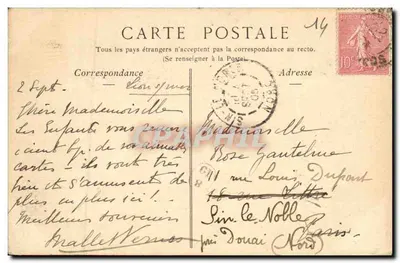 14
CARTE POSTALE
Tous les pays étrangers n'acceptent pas la correspondance au recto.
(Se renseigner à la Poste)
Correspondance
Adresse
2 Sept.
Chère Mademoiselle
Les Enfants vous remer-
cient bp. de vos aimables
cartes! ils vont très
bien et s'amusent de
plus en plus ici!
Meilleurs souvenirs
Mademoiselle
Rose Gantelme
11 rue Louis Dupont
18 rue
Sin le Noble
Paris
près Douai (Nord)
10